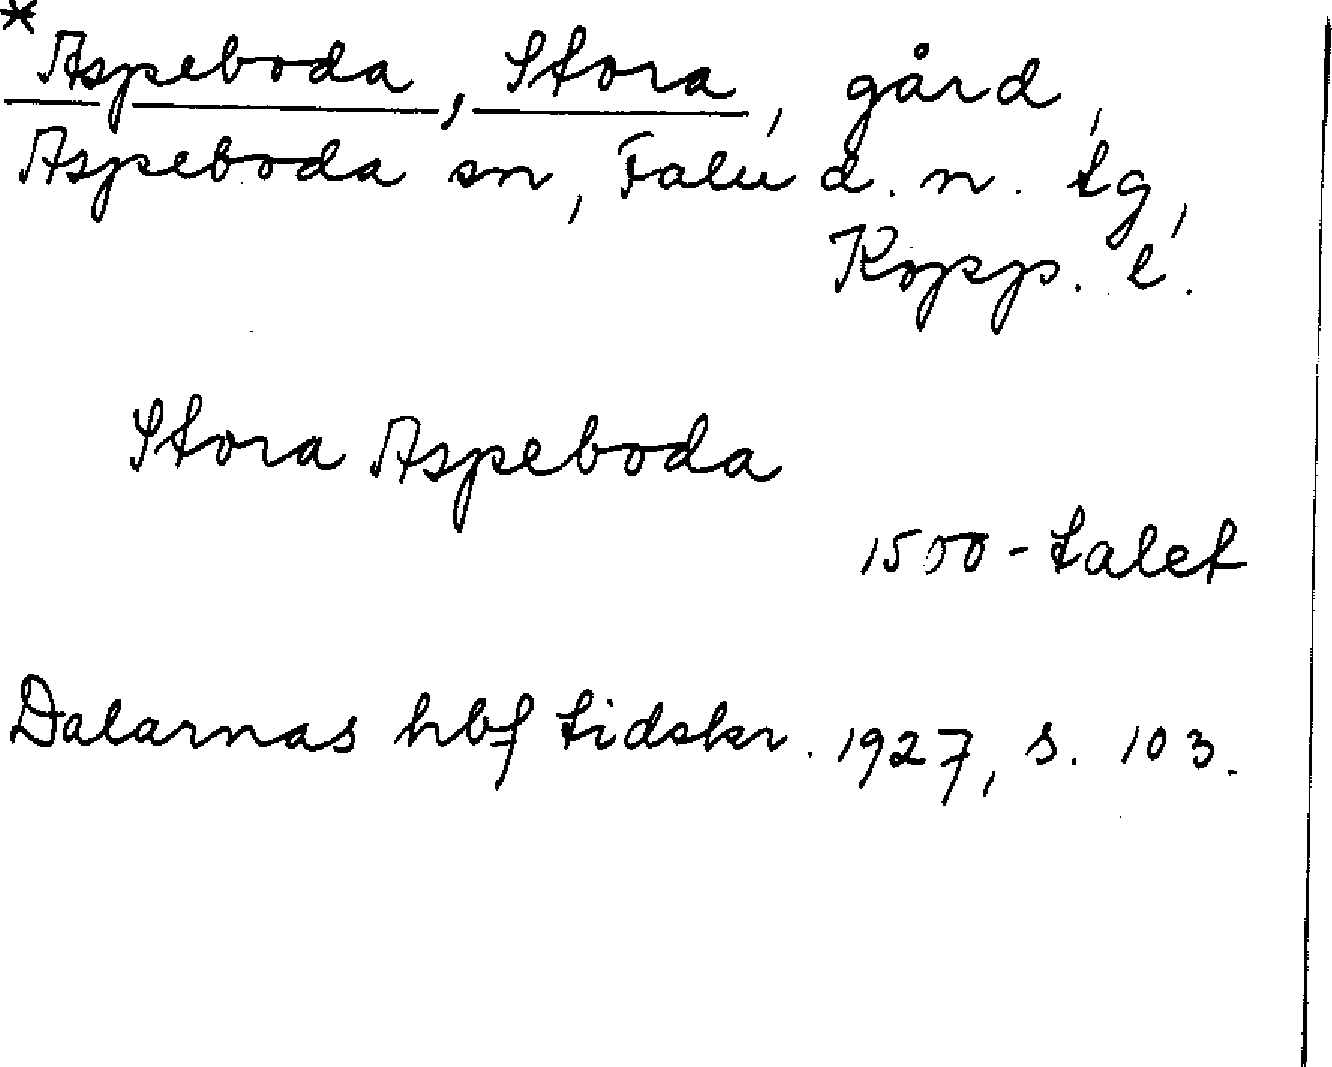 *Aspeboda, Stora, gård,
Aspeboda sn, Falu d. n. tg,
Kopp. l.
Stora Aspeboda
1500-talet
Dalarnas hbf tidskr. 1927, s. 103.